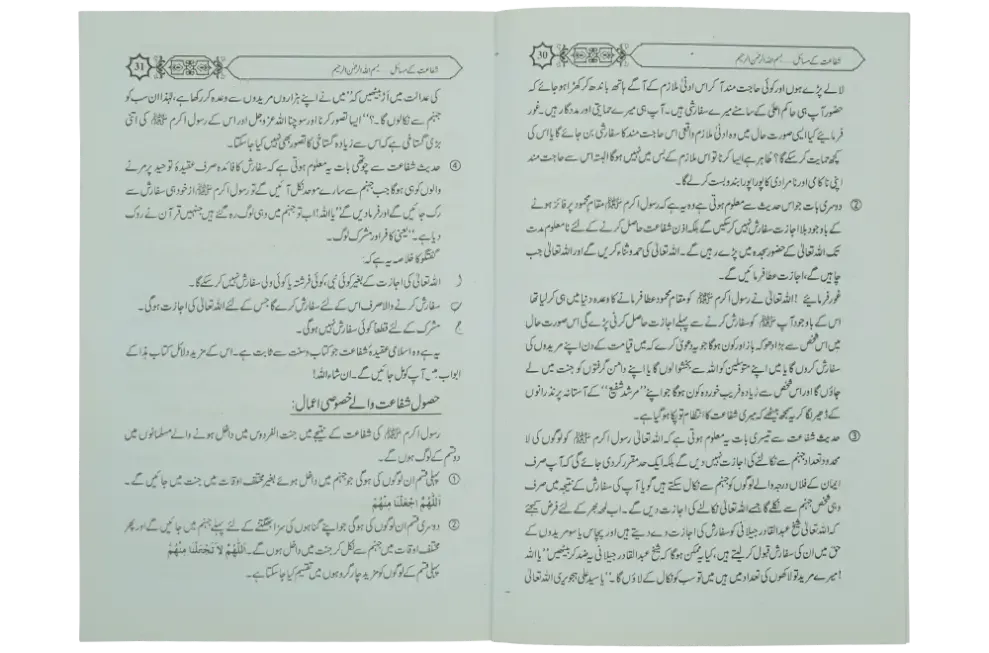 30
شفاعت کے مسائل ... بسم اللہ الرحمٰن الرحیم
لالے پڑے ہوں اور کوئی حاجت مند آ کر اس ادنیٰ ملازم کے آگے ہاتھ باندھ کر کھڑا ہو جائے کہ
حضور آپ ہی حاکم اعلیٰ کے سامنے میرے سفارشی ہیں۔ آپ ہی میرے حمایتی اور مددگار ہیں۔ غور
فرمایئے کیا ایسی صورت حال میں وہ ادنیٰ ملازم واقعی اس حاجت مند کا سفارشی بن جائے گا یا اس کی
کچھ حمایت کر سکے گا؟ ظاہر ہے ایسا کرنا تو اس ملازم کے بس میں نہیں ہوگا البتہ اس سے حاجت مند
اپنی ناکامی اور نامرادی کا پورا پورا بندوبست کر لے گا۔
② دوسری بات جو اس حدیث سے معلوم ہوتی ہے وہ یہ ہے کہ رسول اکرم ﷺ مقام محمود پر فائز ہونے
کے باوجود بلا اجازت سفارش نہیں کر سکیں گے بلکہ اذن شفاعت حاصل کرنے کے لئے نامعلوم مدت
تک اللہ تعالیٰ کے حضور سجدہ میں پڑے رہیں گے۔ اللہ تعالیٰ کی حمد و ثناء کریں گے اور اللہ تعالیٰ جب
چاہیں گے، اجازت عطا فرمائیں گے۔
غور فرمایئے! اللہ تعالیٰ نے رسول اکرم ﷺ کو مقام محمود عطا فرمانے کا وعدہ دنیا میں ہی کر لیا تھا
اس کے باوجود آپ ﷺ کو سفارش کرنے سے پہلے اجازت حاصل کرنی پڑے گی اس صورت حال
میں اس شخص سے بڑا دھوکہ باز اور کون ہوگا جو یہ دعویٰ کرے کہ میں قیامت کے دن اپنے مریدوں کی
سفارش کروں گا یا میں اپنے متوسلین کو اللہ سے بخشوا لوں گا یا اپنے دامن گرفتوں کو جنت میں لے
جاؤں گا اور اس شخص سے زیادہ فریب خوردہ کون ہوگا جو اپنے ”مرشد شفیع“ کے آستانہ پر نذرانوں
کے ڈھیر لگا کر یہ سمجھ بیٹھے کہ میری شفاعت کا انتظام تو پکا ہو گیا ہے۔
③ حدیث شفاعت سے تیسری بات یہ معلوم ہوتی ہے کہ اللہ تعالیٰ رسول اکرم ﷺ کو لوگوں کی لا
محدود تعداد جہنم سے نکالنے کی اجازت نہیں دیں گے بلکہ ایک حد مقرر کر دی جائے گی کہ آپ صرف
ایمان کے فلاں درجہ والے لوگوں کو جہنم سے نکال سکتے ہیں گویا آپ کی سفارش کے نتیجہ میں صرف
وہی شخص جہنم سے نکلے گا جسے اللہ تعالیٰ نکالنے کی اجازت دیں گے۔ اب لمحہ بھر کے لئے فرض کیجئے
کہ اللہ تعالیٰ شیخ عبدالقادر جیلانی کو سفارش کی اجازت دے دیتے ہیں اور پچاس یا سو مریدوں کے
حق میں ان کی سفارش قبول کر لیتے ہیں، کیا یہ ممکن ہوگا کہ شیخ عبدالقادر جیلانی یہ ضد کر بیٹھیں ”یا اللہ
! میرے مرید تو لاکھوں کی تعداد میں ہیں میں تو سب کو نکال کے لاؤں گا۔“ یا سید علی ہجویری اللہ تعالیٰ
31
شفاعت کے مسائل ... بسم اللہ الرحمٰن الرحیم
کی عدالت میں اڑ بیٹھیں کہ ”میں نے اپنے ہزاروں مریدوں سے وعدہ کر رکھا ہے، لہٰذا ان سب کو
جہنم سے نکالوں گا۔؟“ ایسا تصور کرنا اور سوچنا اللہ عزوجل اور اس کے رسول اکرم ﷺ کی اتنی
بڑی گستاخی ہے کہ اس سے زیادہ گستاخی کا تصور بھی نہیں کیا جا سکتا۔
④ حدیث شفاعت سے چوتھی بات یہ معلوم ہوتی ہے کہ سفارش کا فائدہ صرف عقیدۂ توحید پر مرنے
والوں کو ہی ہوگا جب جہنم سے سارے موحد نکل آئیں گے تو رسول اکرم ﷺ از خود ہی سفارش سے
رک جائیں گے اور فرما دیں گے ”یا اللہ! اب تو جہنم میں وہی لوگ رہ گئے ہیں جنہیں قرآن نے روک
دیا ہے۔“ یعنی کافر اور مشرک لوگ۔
گفتگو کا خلاصہ یہ ہے کہ:
( اللہ تعالیٰ کی اجازت کے بغیر کوئی نبی، کوئی فرشتہ یا کوئی ولی سفارش نہیں کر سکے گا۔
ب سفارش کرنے والا صرف اس کے لئے سفارش کرے گا جس کے لئے اللہ تعالیٰ کی اجازت ہوگی۔
ج مشرک کے لئے قطعاً کوئی سفارش نہیں ہوگی۔
یہ ہے وہ اسلامی عقیدۂ شفاعت جو کتاب و سنت سے ثابت ہے۔ اس کے مزید دلائل کتاب ہذا کے
ابواب میں آپ کو مل جائیں گے۔ ان شاء اللہ!
حصول شفاعت والے خصوصی اعمال:
رسول اکرم ﷺ کی شفاعت کے نتیجے میں جنت الفردوس میں داخل ہونے والے مسلمانوں میں
دو قسم کے لوگ ہوں گے۔
① پہلی قسم ان لوگوں کی ہوگی جو جہنم میں داخل ہوئے بغیر مختلف اوقات میں جنت میں جائیں گے۔
اَللّٰهُمَّ اجْعَلْنَا مِنْهُمْ
② دوسری قسم ان لوگوں کی ہوگی جو اپنے گناہوں کی سزا بھگتنے کے لئے پہلے جہنم میں جائیں گے اور پھر
مختلف اوقات میں جہنم سے نکل کر جنت میں داخل ہوں گے۔ اَللّٰهُمَّ لاَ تَجْعَلْنَا مِنْهُمْ
پہلی قسم کے لوگوں کو مزید چار گروہوں میں تقسیم کیا جا سکتا ہے۔